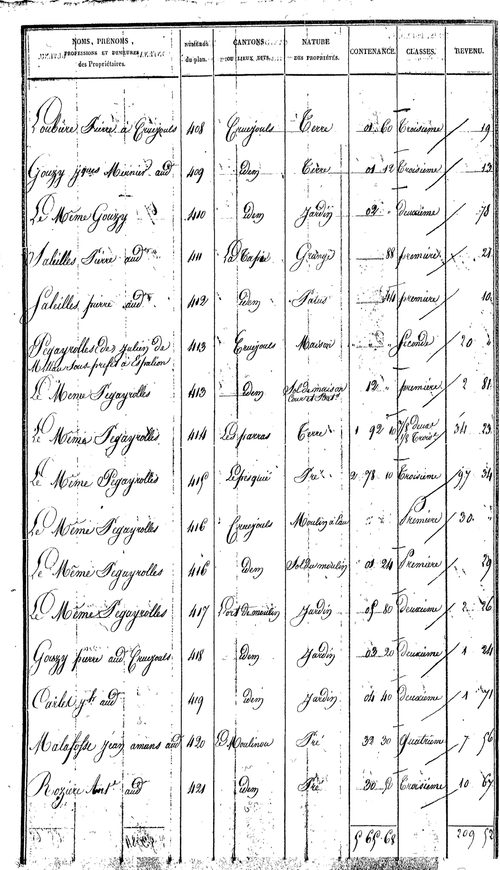 NOMS, PRÉNOMS, PROFESSIONS ET DEMEURES des Propriétaires. NUMÉROS du plan. CANTONS OU LIEUX DITS. NATURE DES PROPRIÉTÉS. CONTENANCE. CLASSES. REVENU.
Loubière Pierre à Cruejouls 408 Cruejouls Terre 01 60 Troisième 19
Gouzy Jques Meunier aud 409 idem Terre 01 12 Troisième 13
Le Même Gouzy 410 idem Jardin 02 deuxième 78
Saleilles Pierre aud 411 La Grange 88 première 21
Saleilles pierre aud 412 idem Patus 44 première 10
Pegayrolles (de) Julien de 413 Cruejouls Maison Seconde 20
Millau sous-prefet à Espalion
Le Même Pegayrolles 413 idem Sol de maison Cour et 12 première 2 81
Le Même Pegayrolles 414 Les parras Terre 1 92 10 34 23
Le Même Pegayrolles 415 Pré 2 78 10 Troisième 97 34
Le Même Pegayrolles 416 Cruejouls Moulin à eau Première 30
Le Même Pegayrolles 416 idem Sol du moulin 01 24 Première 29
Le Même Pegayrolles 417 moulin Jardin 05 80 deuxième 2 26
Gouzy pierre aud Cruejouls 418 idem Jardin 03 20 deuxième 1 24
Carlet aud 419 idem Jardin 04 40 deuxième 1 71
Malafosse jean amans aud 420 Le Moulinou Pré 32 30 quatrième 7 56
Rozière Ant aud 421 idem Pré 30 50 Troisième 10 67
5 65 68 209 52